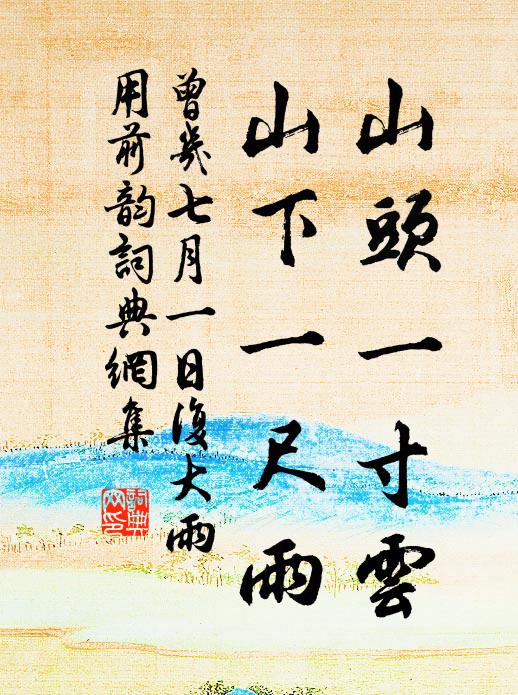 山頭一寸雲
山下一尺雨
曾幾七月一日復大雨
用前韵詞典網集